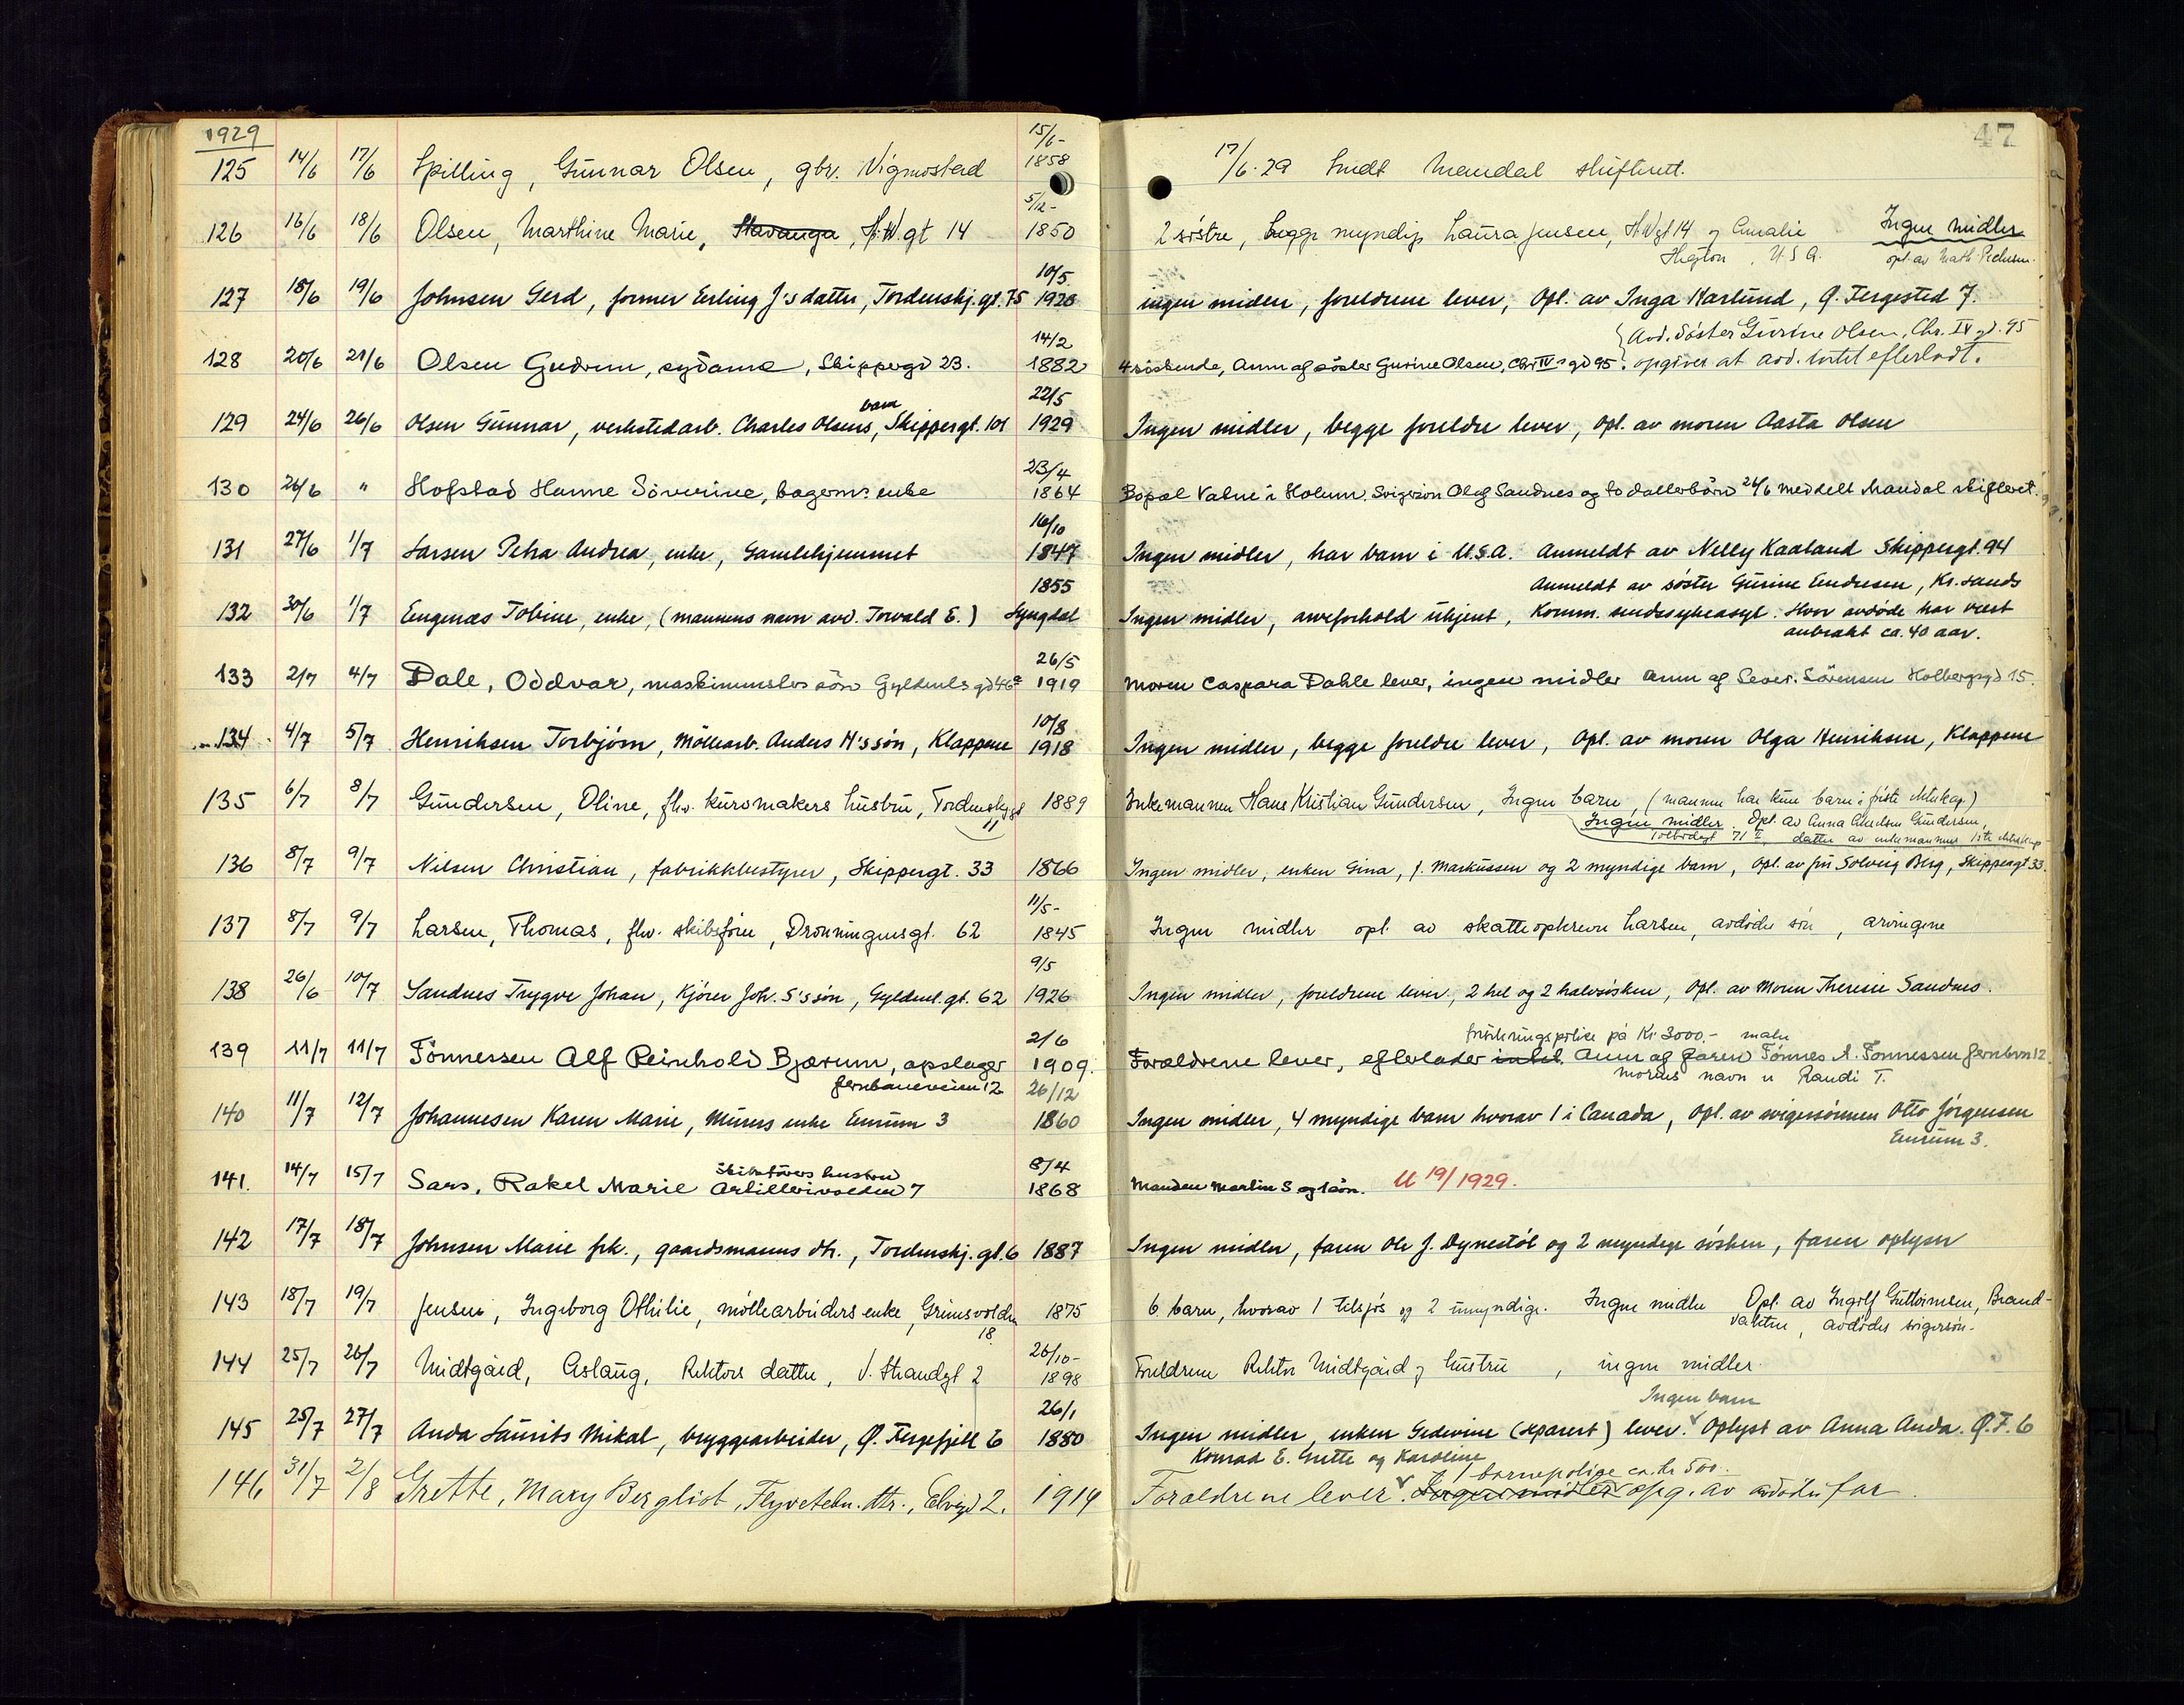 1929
47
125 14/6 17/6 Spilling, Gunnar Olsen, gbr. Vigmostad 15/6- 1858 17/6.29 Sendt Mandal skifterett.
126 16/6 18/6 Olsen, Marthine Marie, Stavanger, H.W.gt 14 5/12- 1850 2 søstre, begge myndig Laura Jensen, H.W.gt 14 og Amalie Ingen midler
U.S.A. opl. av Math. Pedersen.
127 18/6 19/6 Johnsen Gerd, former Erling J's datter, Tordenskj.gt. 75 10/5 1926 ingen midler, foreldrene lever, opl. av Inga Karlund, Q. Fergested 7.
Avd. søster Gurine Olsen, Chr. IV gd. 95
128 20/6 21/6 Olsen Gudrun, sydame, Skippergd 23. 14/2 1882 4 søskende, Anm af søster Gurine Olsen, Chr IVs gd 95. opgiver at avd. intet efterlodt.
129 24/6 26/6 Olsen Gunnar, verkstedarb. Charles Olsens barn, Skippergt. 101 22/5 1929 Ingen midler, begge foreldre lever, opl. av moren Aasta Olsen
130 26/6 " Hofstad Hanne Söverine, bagerm. enke 23/4 1864 Bopæl Valne i Holum. Svigersøn Olaf Sandnes og to datterbørn 26/6 meddelt Mandal skifteret.
131 27/6 1/7 Larsen Petra Andrea, enke, Gamlehjemmet 16/10 1847 Ingen midler, har barn i U.S.A. Anmeldt av Nelly Kaaland Skippergt. 94
Anmeldt av søster Gurine Endresen, Kr.sands
132 30/6 1/7 Eugenæs Tobine, enke, (mannens navn avd. Torvald E.) 1855 Lyngdal Ingen midler, arveforhold ukjent, Komm. sindssykeasyl. Hvor avdøde har været
anbrakt ca. 40 aar.
133 2/7 4/7 Dale, Oddvar, maskinmesters søn Gyldenls gd 46a 26/5 1919 Moren Caspara Dahle lever, ingen midler Anm af Sever. Sörensen Holbergsgd 15.
134 4/7 5/7 Henriksen Torbjörn, Möllearb. Anders H's sön, Klappene 10/8 1918 Ingen midler, begge foreldre lever, Opl. av moren Olga Henriksen, Klappene
135 6/7 8/7 Gundersen, Oline, fhv. kurvmakers hustru, Tordenskjgt 11 1889 Enkemannen Hans Kristian Gundersen, Ingen barn, (mannen har kun barn i første ekteskap)
Ingen midler. Opl. av Anna Gundersen,
71 datter av enkemannens 1ste ekteskap
136 8/7 9/7 Nilsen Christian, fabrikkbestyrer, Skippergt. 33 1866 Ingen midler, enken Gina, f. Markussen og 2 myndige barn, Opl. av fru Solveig Berg, Skippergt 33.
137 8/7 9/7 Larsen, Thomas, fhv. skibsfører, Dronningensgt. 62 11/5- 1845 Ingen midler opl. av skatteopkrever Larsen, avdødes sön, arvingene
138 26/6 10/7 Sandnes Trygve Johan, Kjörer Joh. S's sön, Gyldenl.gt. 62 9/5 1926 Ingen midler, foreldrene lever, 2 hel og 2 halvsösken, Opl. av Moren Theresie Sandnes.
forsikringspolise på Kr 3000.-
139 11/7 11/7 Tönnessen Alf Reinhold Bjarum, opslager 2/6 1909. Forældrene lever, efterlader intet. Anm af faren Tönnes A. Tönnessen Jernbvn 12
Jernbaneveien 12 morens navn er Randi T.
140 11/7 12/7 Johannesen Karen Marie, Murers enke Enrum 3 26/12 1860 Ingen midler, 4 myndige barn hvorav 1 i Canada, Opl. av svigersönnen Otto Jörgensen
Enrum 3.
141. 14/7 15/7 Sars, Rakel Marie skibsförers hustru Artillerivolden 7 8/4 1868 Manden Martin S og 1 sön. U 19/1929.
142 17/7 18/7 Johnsen Marie frk., gaardsmanns dtr., Tordenskj.gt. 6 1887 Ingen midler, faren Ole J. Dynestöl og 2 myndige sösken, faren oplyser
143 18/7 19/7 Jensen, Ingeborg Othilie, möllearbeiders enke, Grimsvolden 18 1875 6 barn, hvorav 1 tilsjös og 2 umyndige. Ingen midler Opl. av Ingolf Guttormsen, Brand-
vakten, avdødes svigersön.
144 25/7 26/7 Midtgård, Aslaug, Rektors datter, V. Strandgt 2 26/10- 1898 Foreldrene Rektor Midtgård og hustru, ingen midler.
Ingen barn
145 25/7 27/7 Anda Laurits Mikal, bryggearbeider, Ø. Fergefjell 6 26/1 1880 Ingen midler, enken Gedevine (separert) lever. Oplyst av Anna Anda. Ø.F. 6
Konrad E. Grette og Karoline 1 barnepolise ca. kr 500.-
146 31/7 2/8 Grette, Mary Bergliot, dtr., Elvegd 2. 1914 Foraldrene lever. Ingen midler opg. av avdødes far.